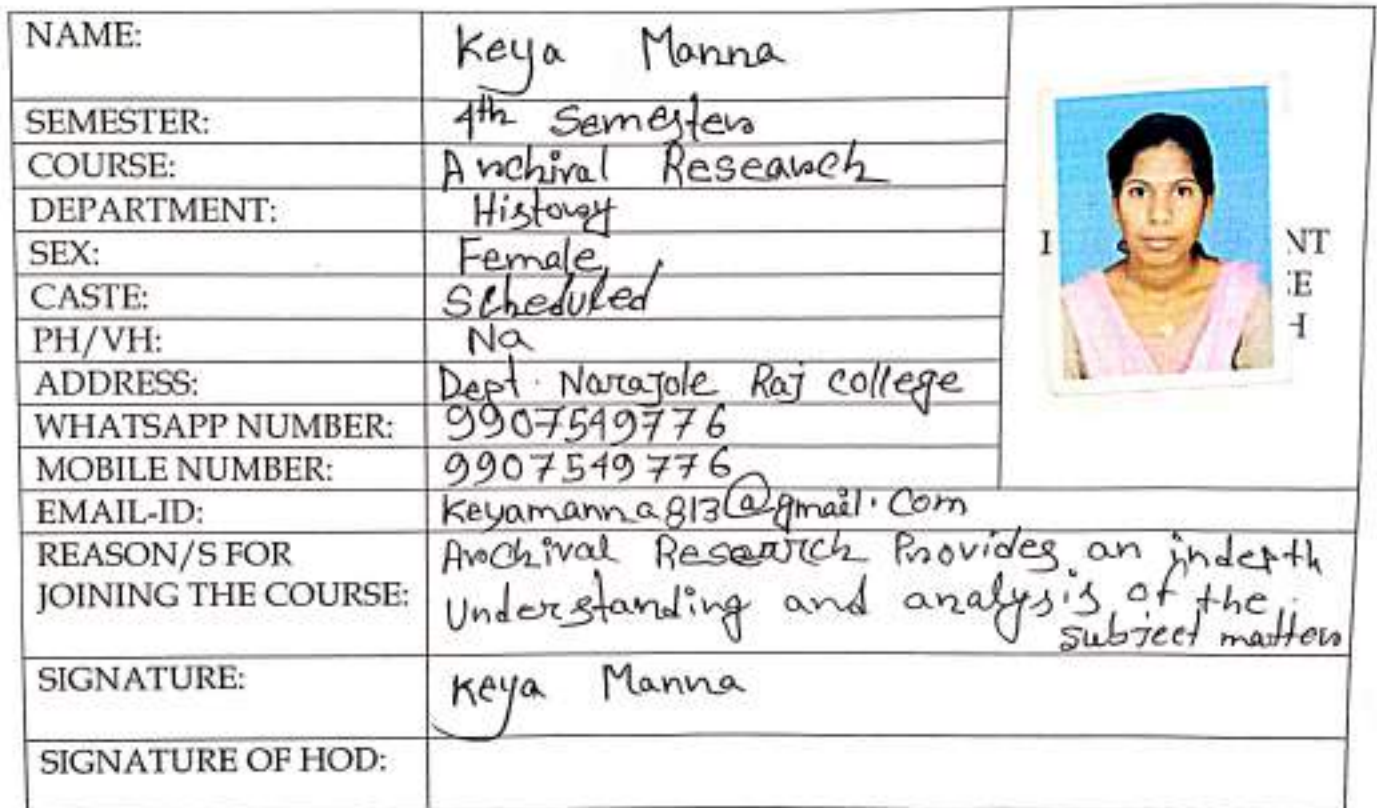 NAME: Keya Manna
SEMESTER: 4th Semester
COURSE: Archival Research
DEPARTMENT: History
SEX: Female
CASTE: Scheduled
PH/VH: Na
ADDRESS: Dept. Narajole Raj college
WHATSAPP NUMBER: 9907549776
MOBILE NUMBER: 9907549776
EMAIL-ID: Keyamanna813@gmail.com
REASON/S FOR Archival Research Provides an indepth
JOINING THE COURSE: Understanding and analysis of the
subject matter
SIGNATURE: Keya Manna
SIGNATURE OF HOD:
I NT
E
H